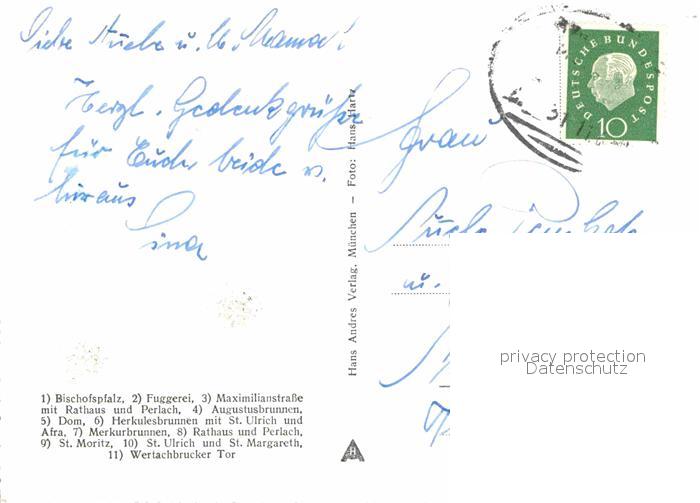 Liebe
u. lb. Mama!
Herzl. Gedenkgrüße
für Euch beide v.
hieraus
DEUTSCHE BUNDESPOST
10
Frau
u.
Hans Andres Verlag, München — Foto: Hans Hartz
privacy protection
Datenschutz
1) Bischofspfalz, 2) Fuggerei, 3) Maximilianstraße
mit Rathaus und Perlach, 4) Augustusbrunnen,
5) Dom, 6) Herkulesbrunnen mit St. Ulrich und
Afra, 7) Merkurbrunnen, 8) Rathaus und Perlach,
9) St. Moritz, 10) St. Ulrich und St. Margareth,
11) Wertachbrucker Tor